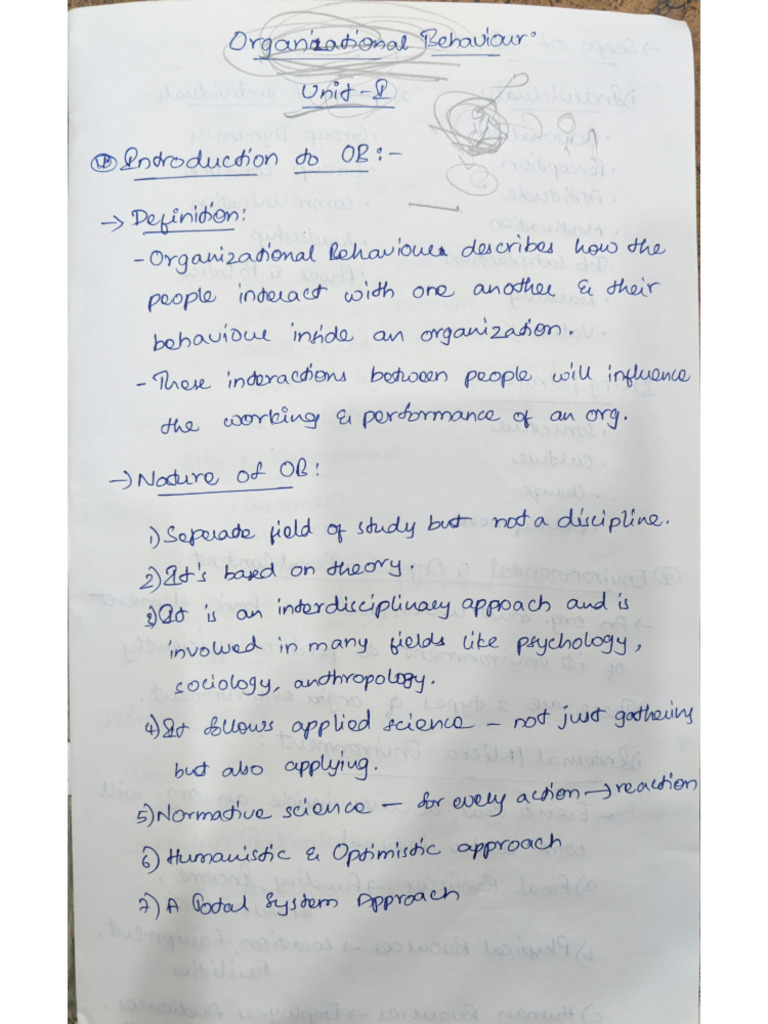 Organizational Behaviour
Unit-I
Introduction to OB:-
→ Definition:
- Organizational Behaviour describes how the
people interact with one another & their
behaviour inside an organization.
- These interactions between people will influence
the working & performance of an org.
→ Nature of OB:
1) Seperate field of study but not a discipline.
2) It's based on theory.
3) It is an interdisciplinary approach and is
involved in many fields like psychology,
sociology, anthropology.
4) It follows applied science - not just gathering
but also applying.
5) Normative science - for every action → reaction
6) Humanistic & Optimistic approach
7) A Total System Approach